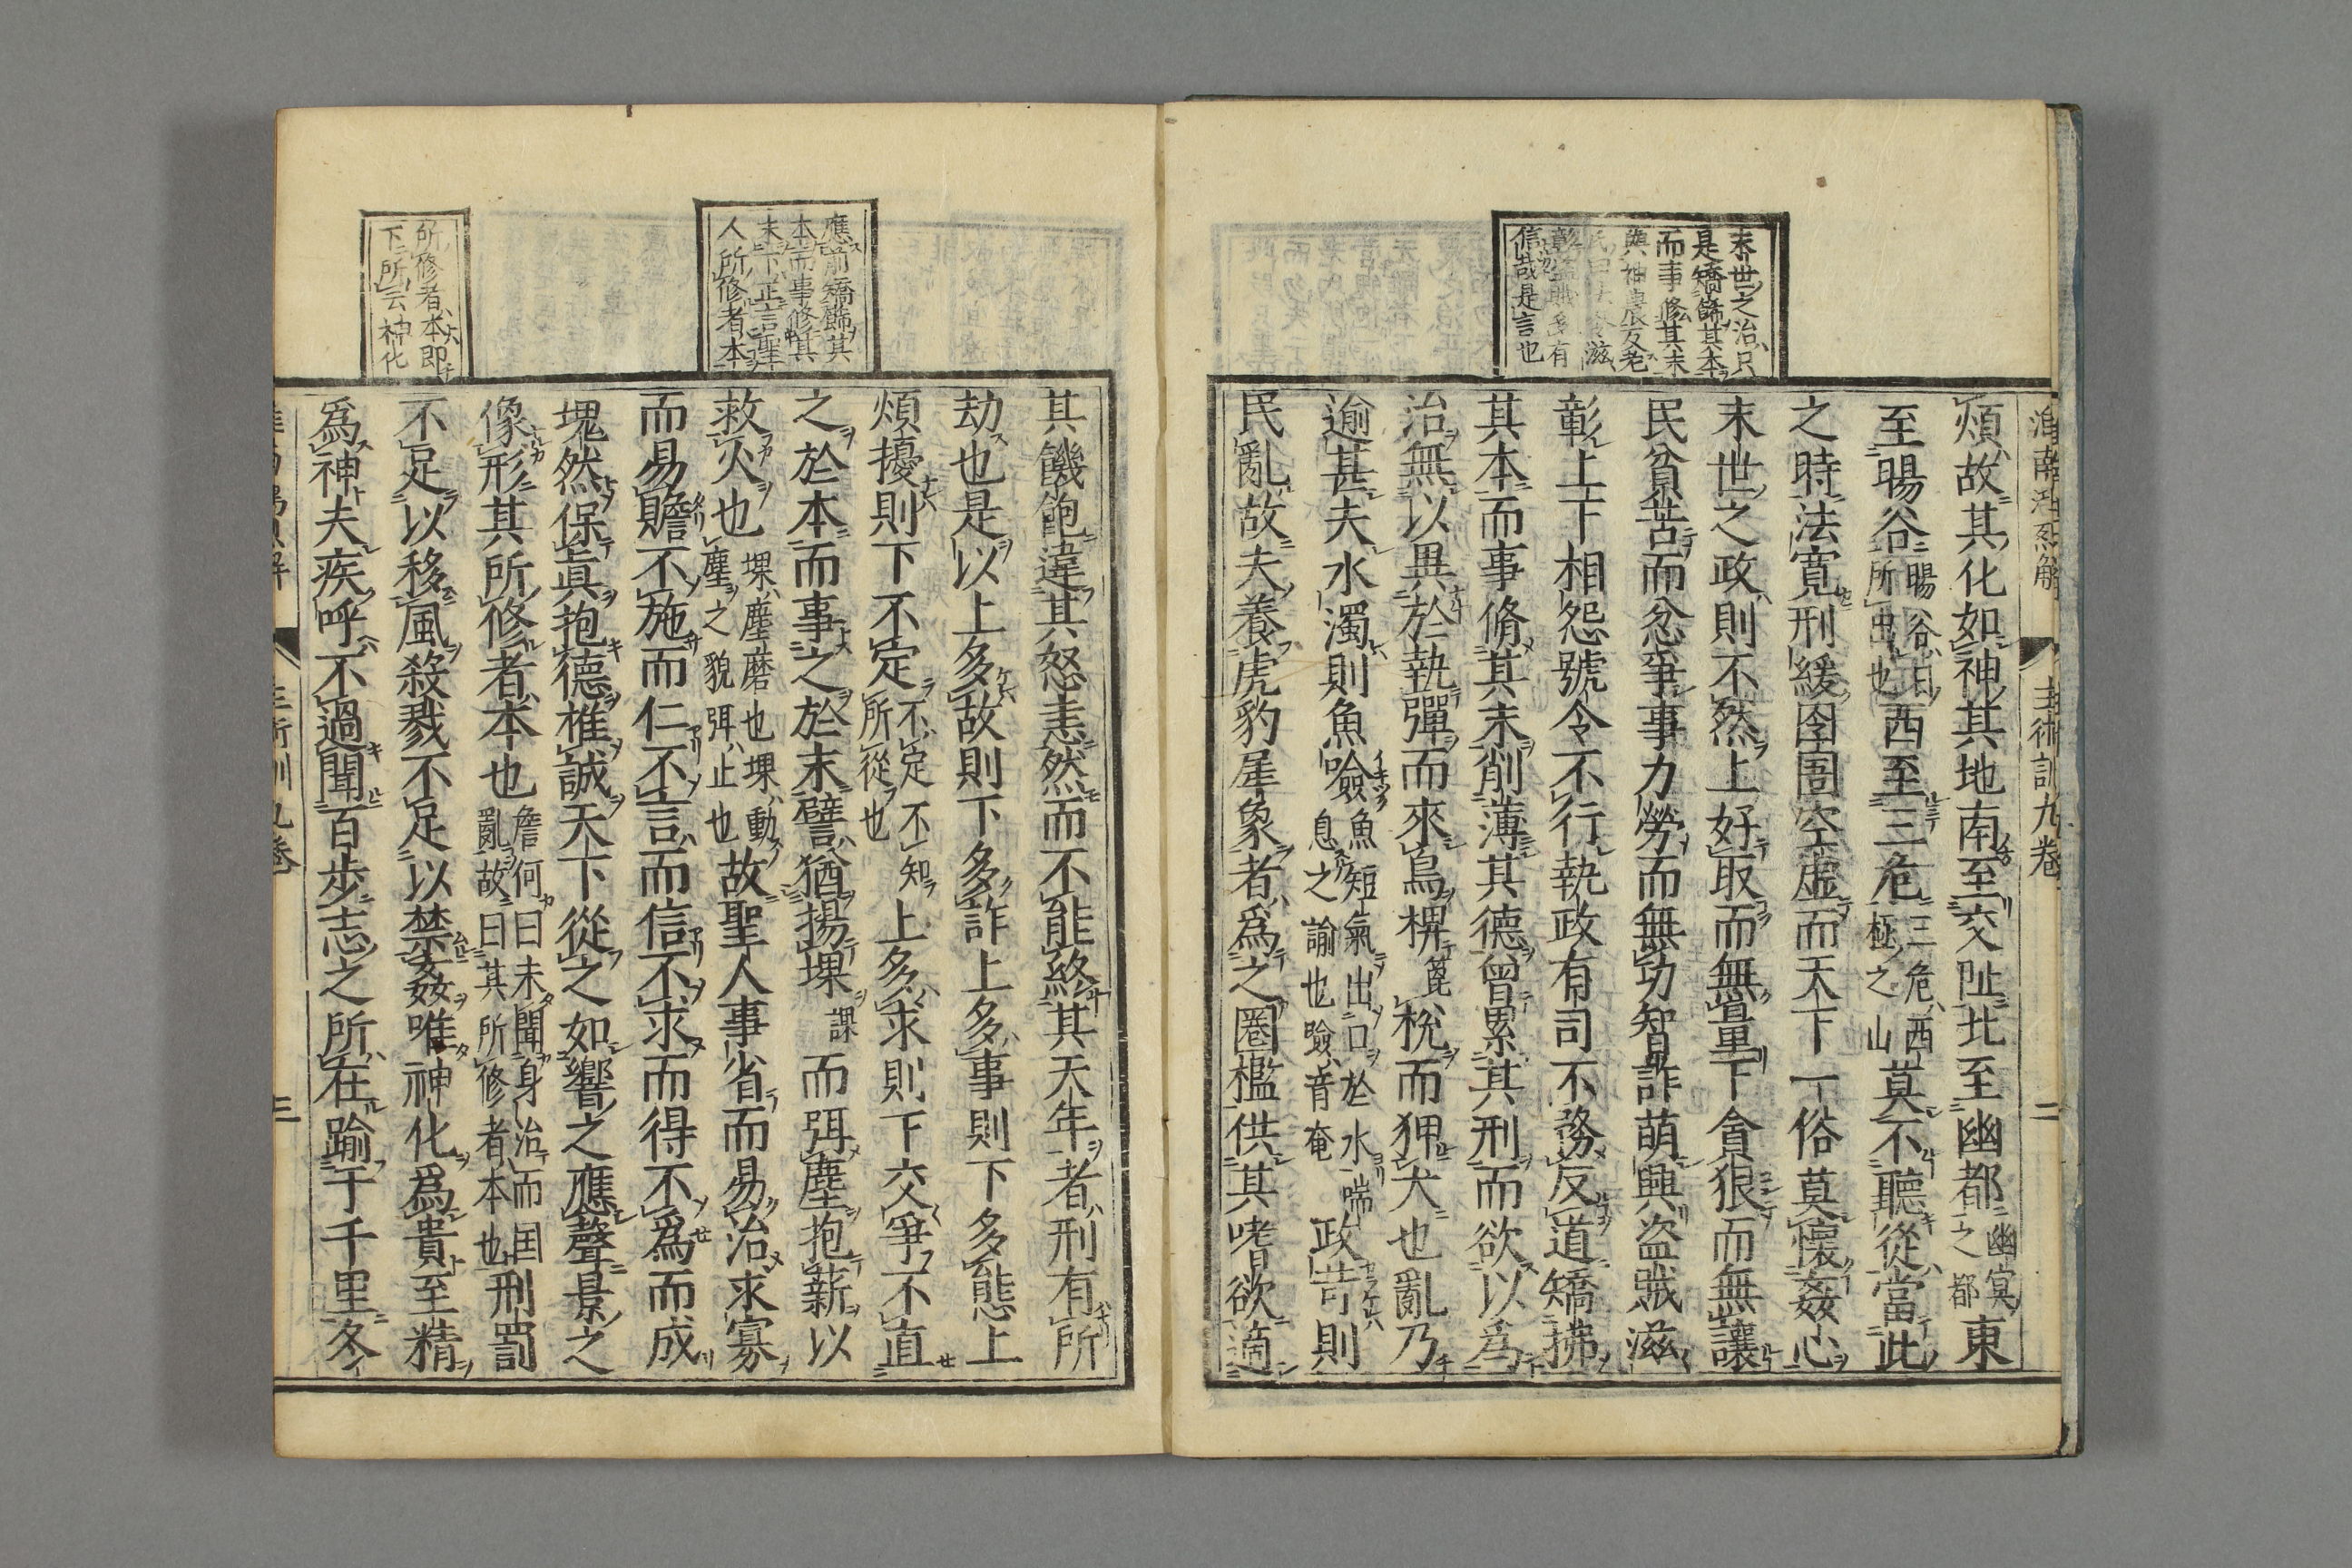 末世之治只
是矯飾其本
而事修其末
與神農反老
信哉是言也
主術訓九卷
二
煩故其化如神其地南至交阯北至幽都幽冥之都東
至暘谷暘谷日所出也西至三危三危西極之山莫不聽從當此
之時法寬刑緩囹圄空虛而天下一俗莫懷姦心
末世之政則不然上好取而無量下貪狠而無讓
民貧苦而忿爭事力勞而無功智詐萌興盜賊滋
彰上下相怨號令不行執政有司不務反道矯拂
其本而事脩其末削薄其德曾累其刑而欲以爲
治無以異於執彈而來鳥椑箆梲而狎犬也亂乃
逾甚夫水濁則魚噞魚短氣出口於水喘息之諭也噞音奄政苛則
民亂故夫養虎豹犀象者爲之圈檻供其嗜欲適
應前矯飾其
本而事修其
末下正言聖
人所修者本
所修者本即
下所云神化
其饑飽違其怒恚然而不能終其天年者刑有所
劫也是以上多故則下多詐上多事則下多態上
煩擾則下不定不定不知所從也上多求則下交爭不直
之於本而事之於末譬猶揚堁課而弭塵抱薪以
救火也堁塵磨也堁動塵之貌弭止也故聖人事省而易治求寡
而易贍不施而仁不言而信不求而得不爲而成
塊然保眞抱德推誠天下從之如響之應聲景之
像形其所修者本也詹何曰未聞身治而国亂故曰其所修者本也刑罰
不足以移風殺戮不足以禁姦唯神化爲貴至精
爲神夫疾呼不過聞百步志之所在踰于千里冬
三